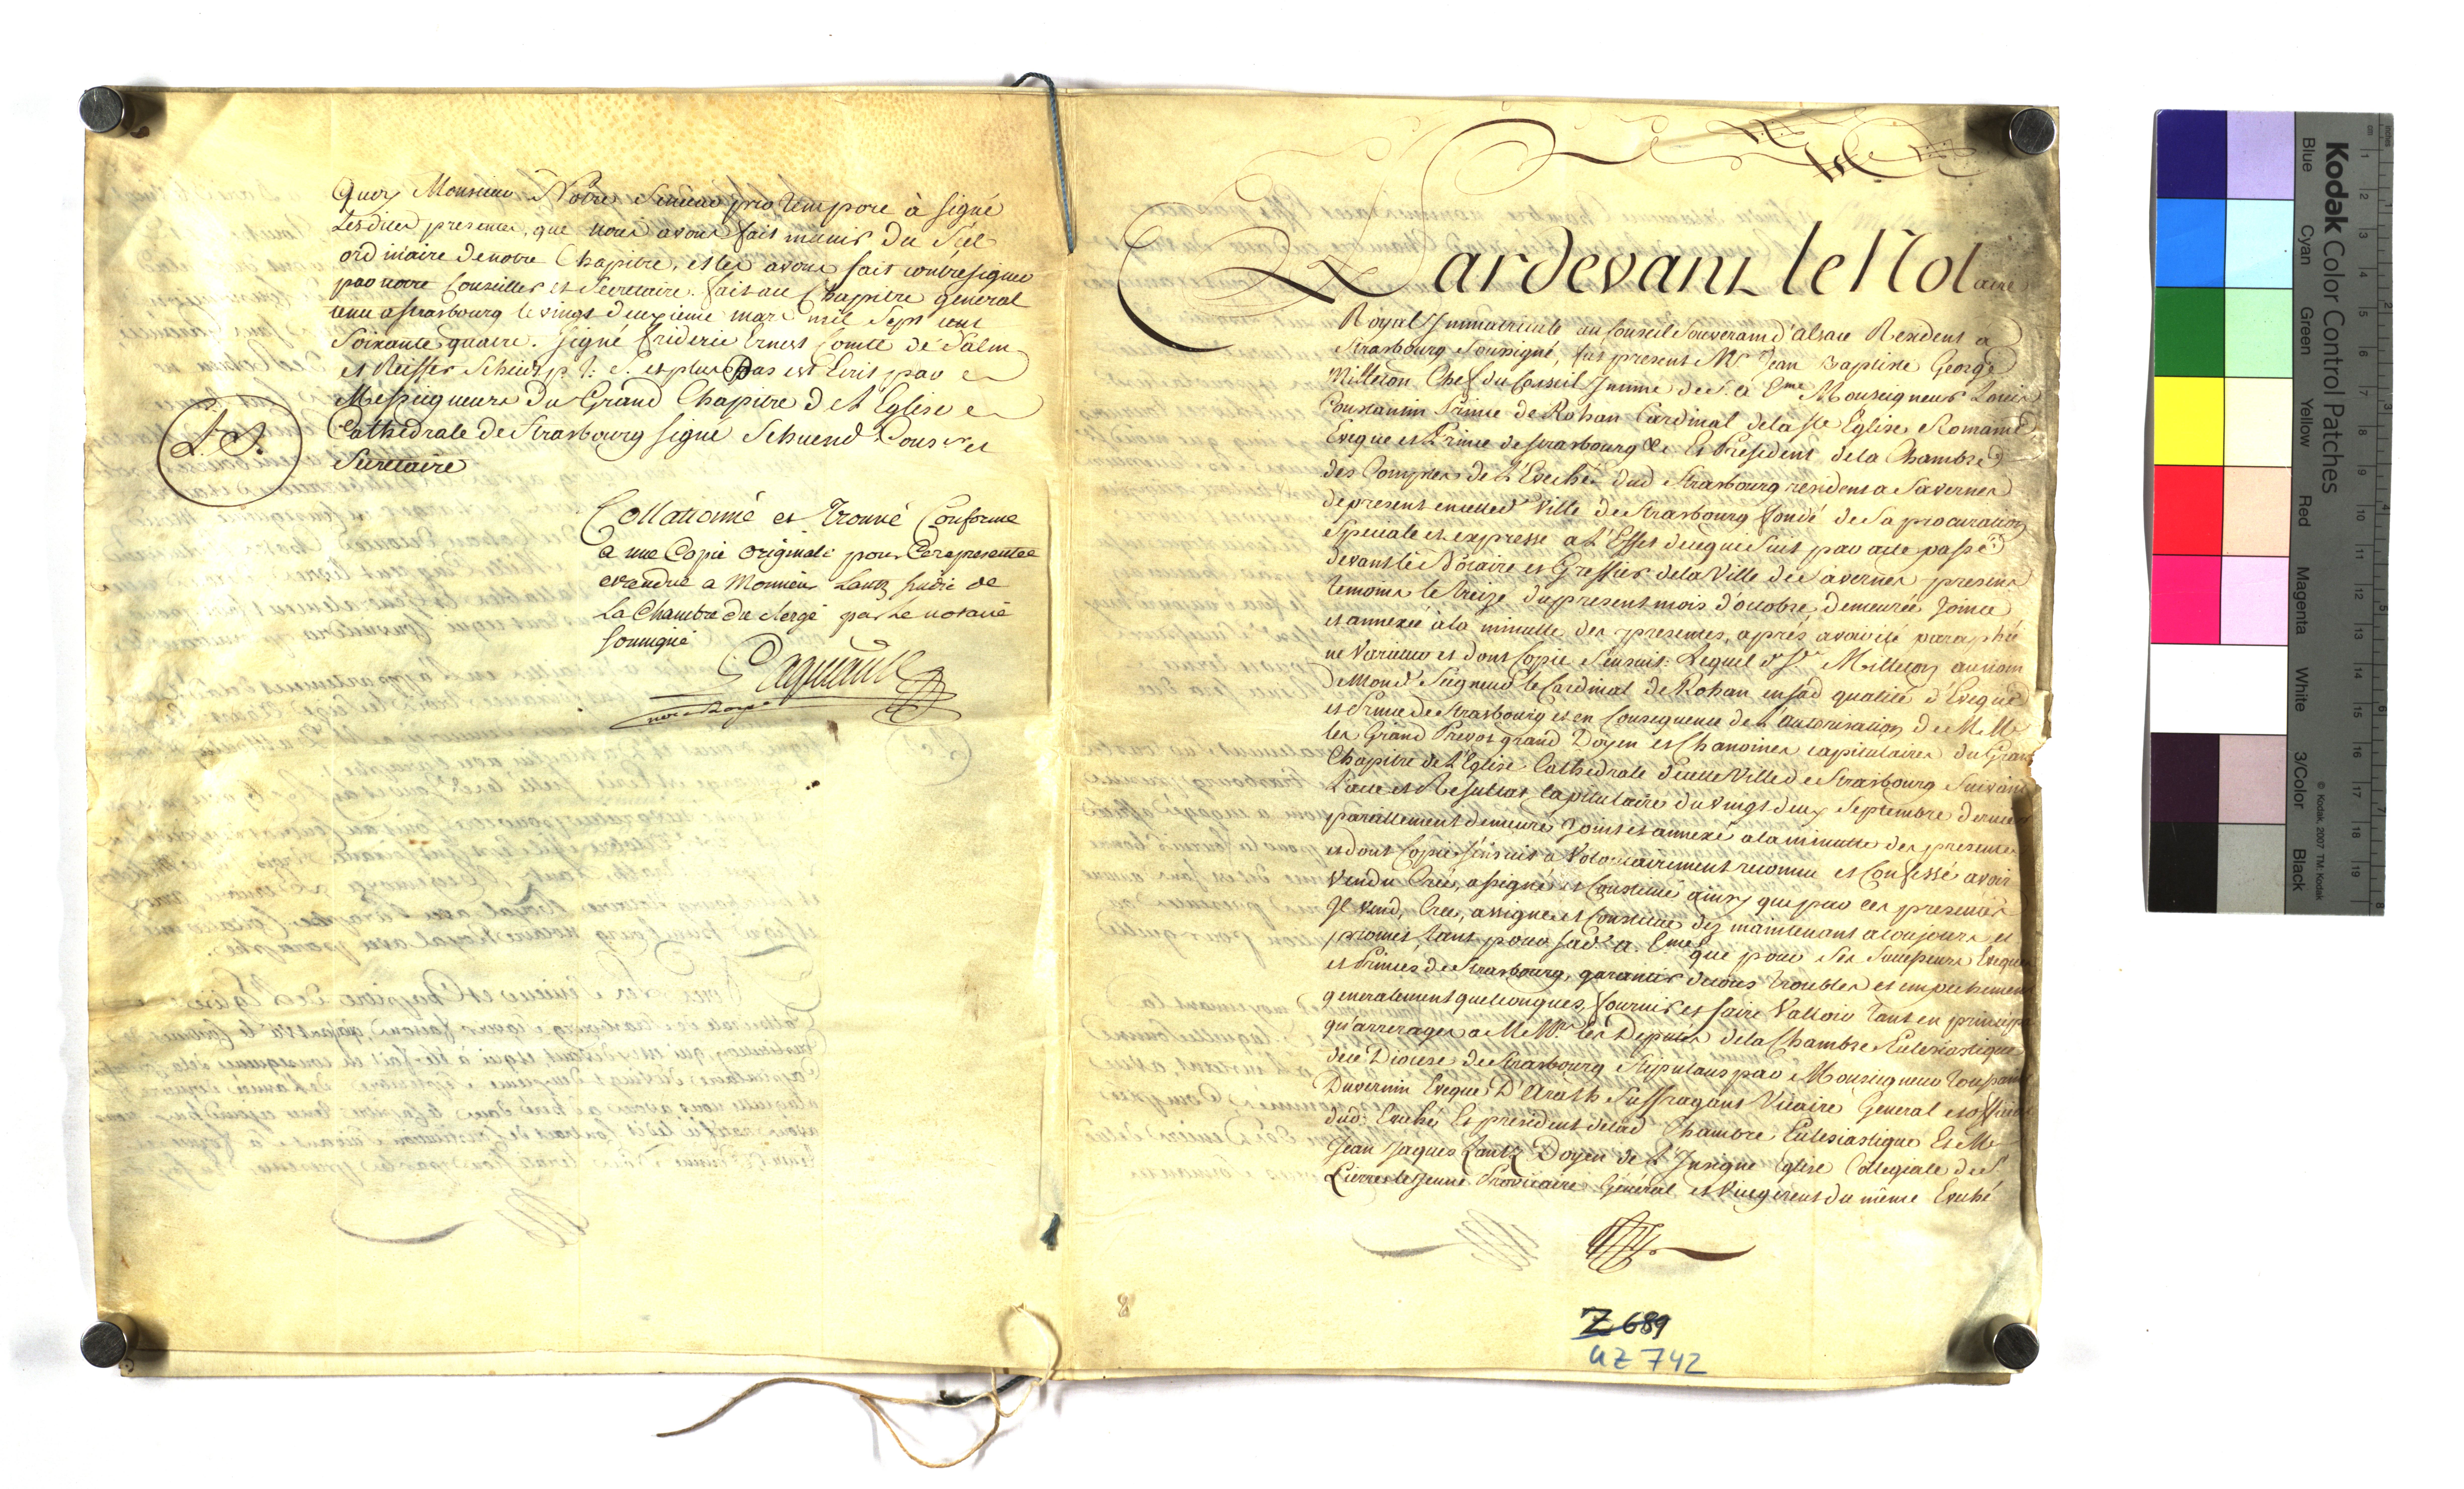 Quoy Monsieur Nôtre Senieur pro tempore à signé
Lesdites presentes, que nous avons fait munir du Séel
ordinaire de notre Chapitre, et les avons fait contresigner
par notre Conseiller et Secretaire. fait au Chapitre general
tenu a strasbourg le vingt deuxieme mars mil Sept cent
Soixante quatre. signé frideric Ernest Comte de Salm
et Reiffer Scheidt p. t: S. et plus Bas est Ecrit par
Messeigneurs du Grand Chapitre de L'Eglise
Cathedrale de Strasbourg signé Schuend Cons.er et
Secretaire
L. S.
Collationné et trouvé Conforme
a une Copie originale pour Ce representée
et rendue a Monsieur Lantz sindic de
La Chambre du Clergé par Le notaire
soussigné
Pardevant le Notaire
Royal Immatriculé au Conseil Souverain d'alsace Resident a
Strasbourg Soussigné, fut present Mr. Jean Baptiste George
Milleton Chef du Conseil Intime de S. A. Eme Monseigneur Louis
Constantin Prince de Rohan Cardinal de la Ste Eglise Romaine
Eveque et Prince de strasbourg &c Et President de la Chambre
des Comptes de L'Eveché dud Strasbourg resident a Savernes
de present en cette Ville de Strasbourg fondé de Sa procuration
Speciale et expresse a L'Effet de ce qui Suit par acte passé
devant le Notaire et Greffier de la Ville de Savernes presens
temoins le treize du present mois d'octobre, demeurée Jointe
et annexée à la minutte des presentes, aprés avoir été paraphé
ne varietur et dont Copie S'ensuit: Lequel d. Sr. Milleton au nom
de Mond. Seigneur le Cardinal de Rohan en sad qualité d'Eveque
et Prince de Strasbourg et en Consequence de L'autorisation de M.M.
les Grand Prevot grand Doyen et Chanoines capitulaires du Grand
Chapitre de L'Eglise Cathedrale de cette Ville de Strasbourg Suivant
L'acte et Resultat Capitulaire du vingt deux Septembre dernier
pareillement demeuré Joint et annexé a la minutte des presentes
et dont Copie s'ensuit a Volontairement reconnu et Confessé avoir
vendu Créé, assigné et Constitué ainsy que par ces presentes
Il vend, Crée, assigne et Constitue dez maintenant a toujours et
promet tant pour sad.e A. Eme que pour Ses Successeurs Eveques
et Princes de Strasbourg, garantir de tous troubles et empechemens
generalement quelconques, fournir et faire Valloir tant en principal
qu'arrerages a M Mrs. les Deputés de la Chambre Eclesiastique
de ce Diocese de Strasbourg Stipulans par Monseigneur Toussaint
Duvernin Eveque D'Arath Suffragant Vicaire General et official
dud. Eveché Et president de lad Chambre Eclesiastique Et Mr
Jean Jaques Lantz Doyen de L'Insigne Eglise Collegiale de St
Pierre le Jeune Provicaire Général et Vicegerent du même Eveché
8
Z 689
UZ 742
Kodak Color Control Patches
Blue Cyan Green Yellow Red Magenta White 3/Color Black
© Kodak, 2007 TM Kodak